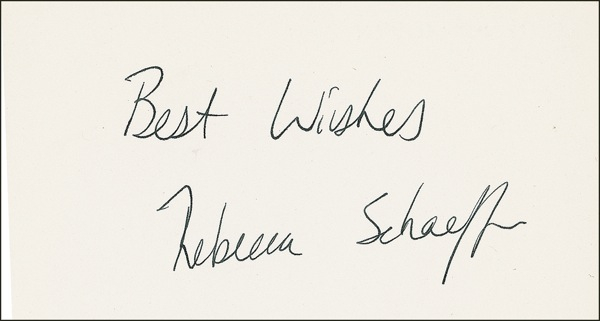 Best Wishes
Rebecca Schaeffer